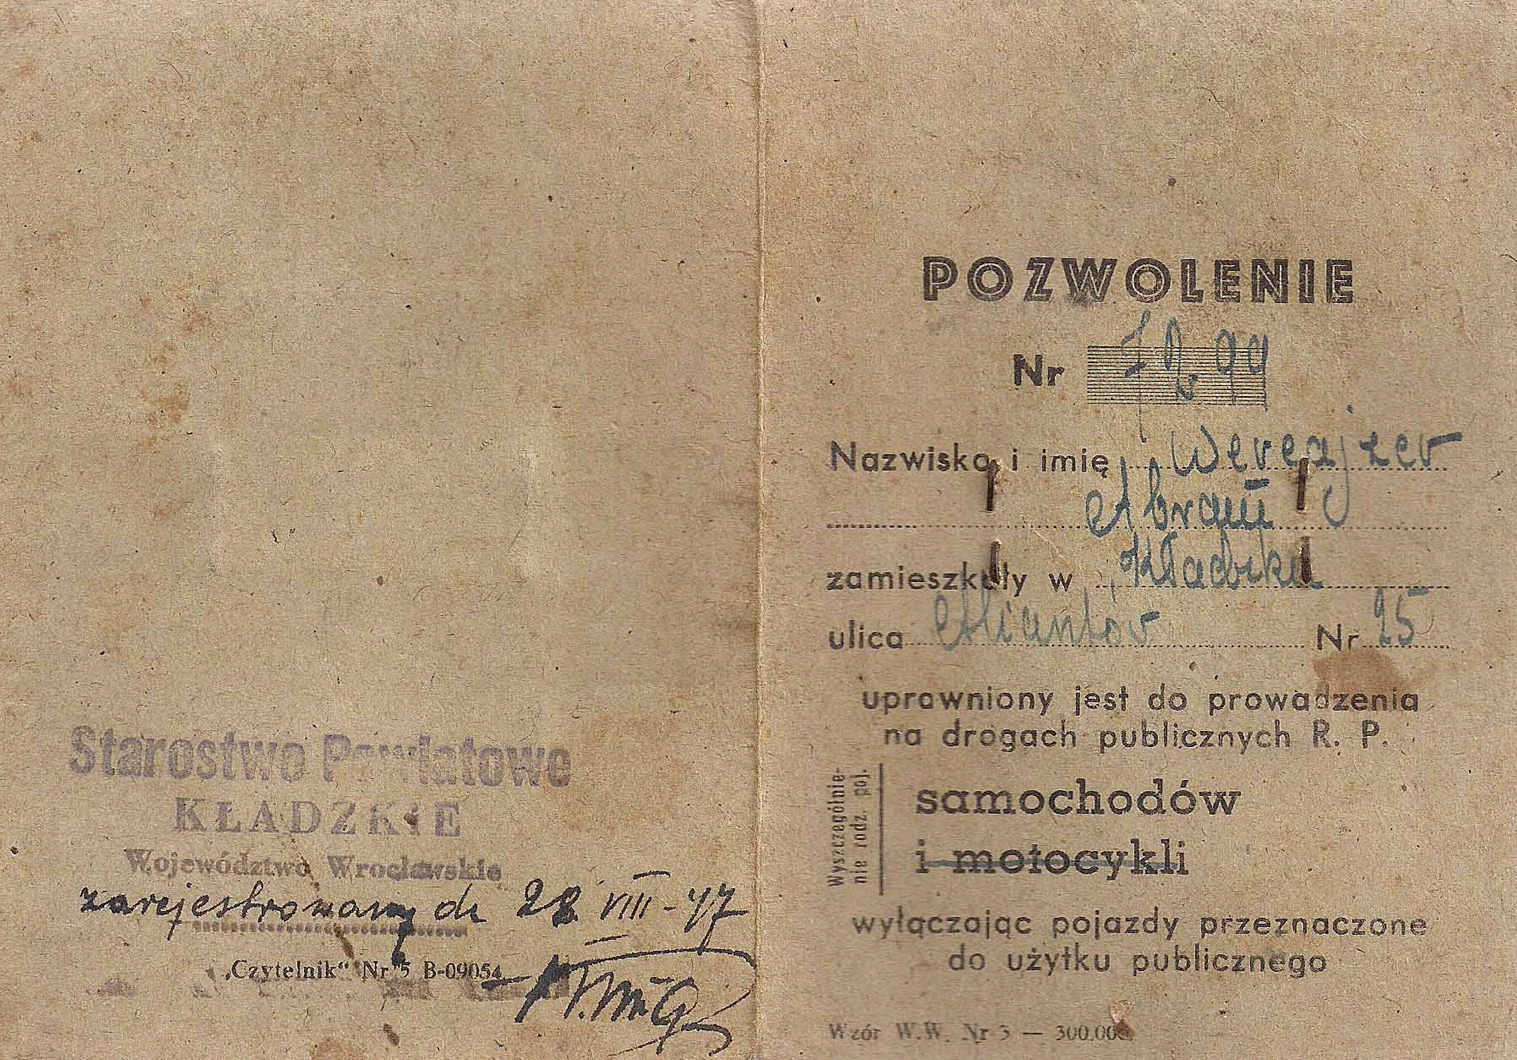 Starostwo Powiatowe
KŁADZKIE
Województwo Wrocławskie
zarejestrowany dn 28 VIII - 47
„Czytelnik“ Nr 5 B-09054
POZWOLENIE
Nr
Nazwisko i imię Wereajzer
Abram
zamieszkały w Kładzku
ulica Aliantów Nr 25
uprawniony jest do prowadzenia
na drogach publicznych R. P.
Wyszczególnie-
nie rodz. poj.
samochodów
i motocykli
wyłączając pojazdy przeznaczone
do użytku publicznego
Wzór W.W. Nr 3 — 300.000